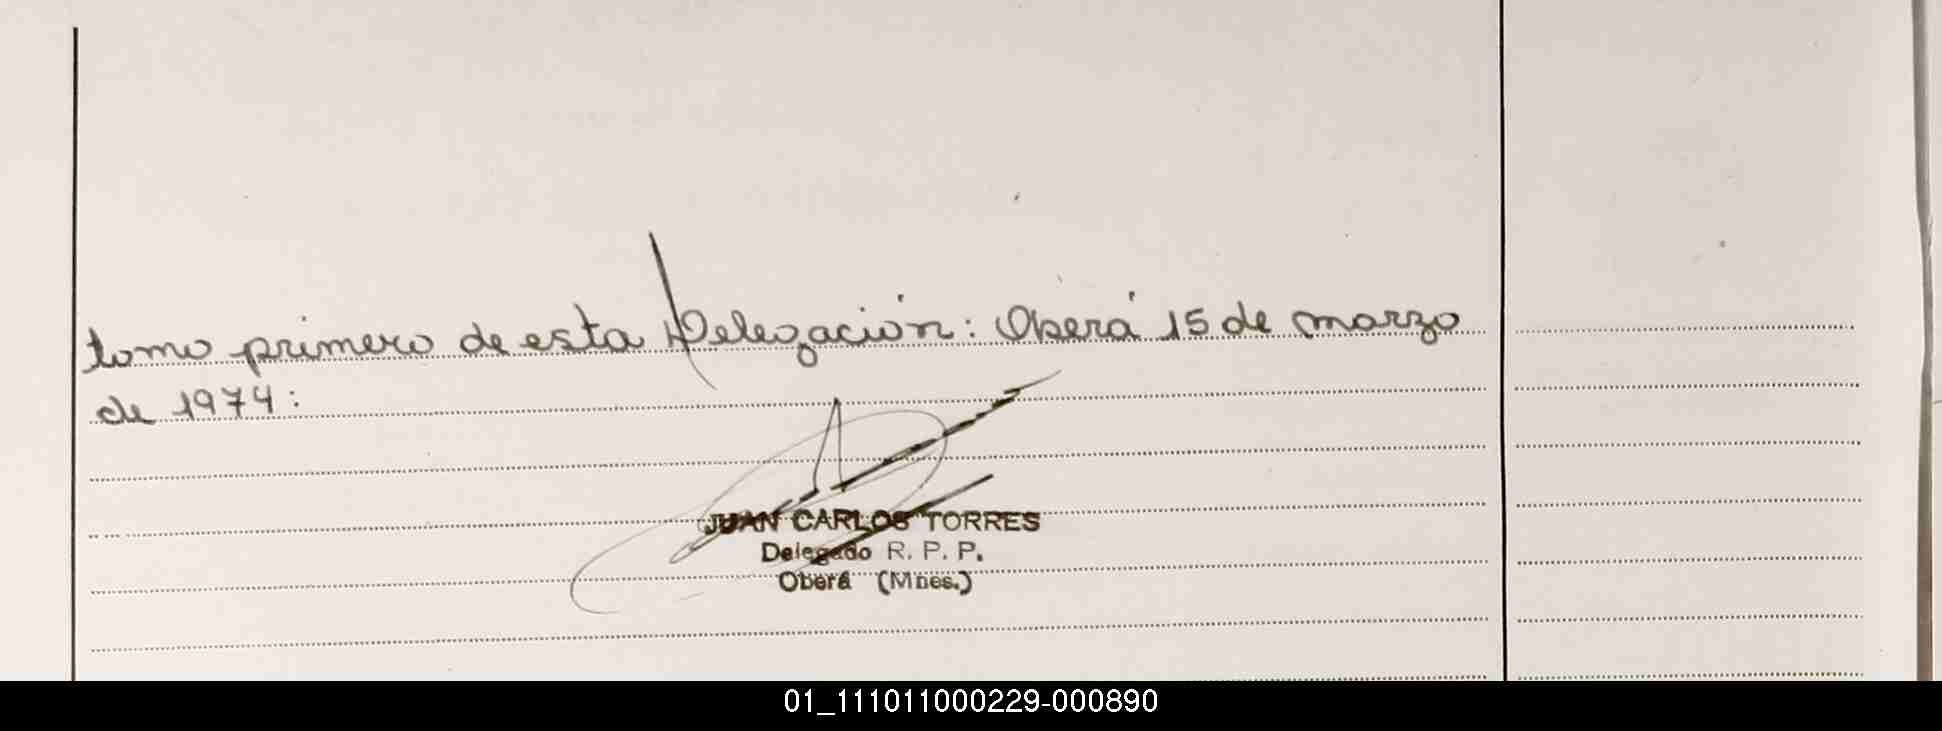 tomo primero de esta Delegación: Oberá 15 de marzo
de 1974:
JUAN CARLOS TORRES
Delegado R. P. P.
Oberá (Mnes.)
01_111011000229-000890